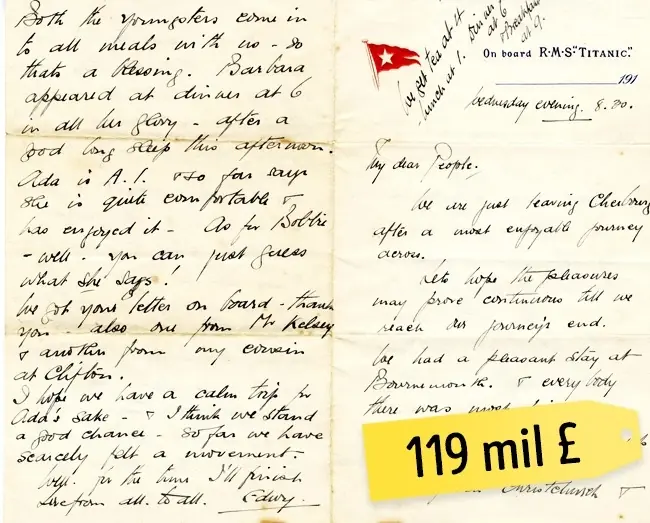 Both the youngsters come in
to all meals with us - so
thats a blessing. Barbara
appeared at dinner at 6
in all her glory - after a
good long sleep this afternoon.
Ada is A.1. & so far says
she is quite comfortable &
has enjoyed it - As for Bobbie
- well - you can just guess
what she says!
We got your letter on board - thank
you - also one from Mr Kelsey
& another from my cousin
at Clifton.
I hope we have a calm trip for
Ada's sake - & I think we stand
a good chance - so far we have
scarcely felt a movement.
Well for the time I'll finish
Love from all. to all. Edwy.
We get tea at 4
lunch at 1. Dinner
at 6
Breakfast
at 9.
On board R·M·S "TITANIC."
191
Wednesday evening. 8.30.
My dear People.
We are just leaving Cherbourg
after a most enjoyable journey
across.
Lets hope the pleasures
may prove continuous till we
reach our journey's end.
We had a pleasant stay at
Bournemouth. & everybody
there was most
119 mil £
Christchurch &